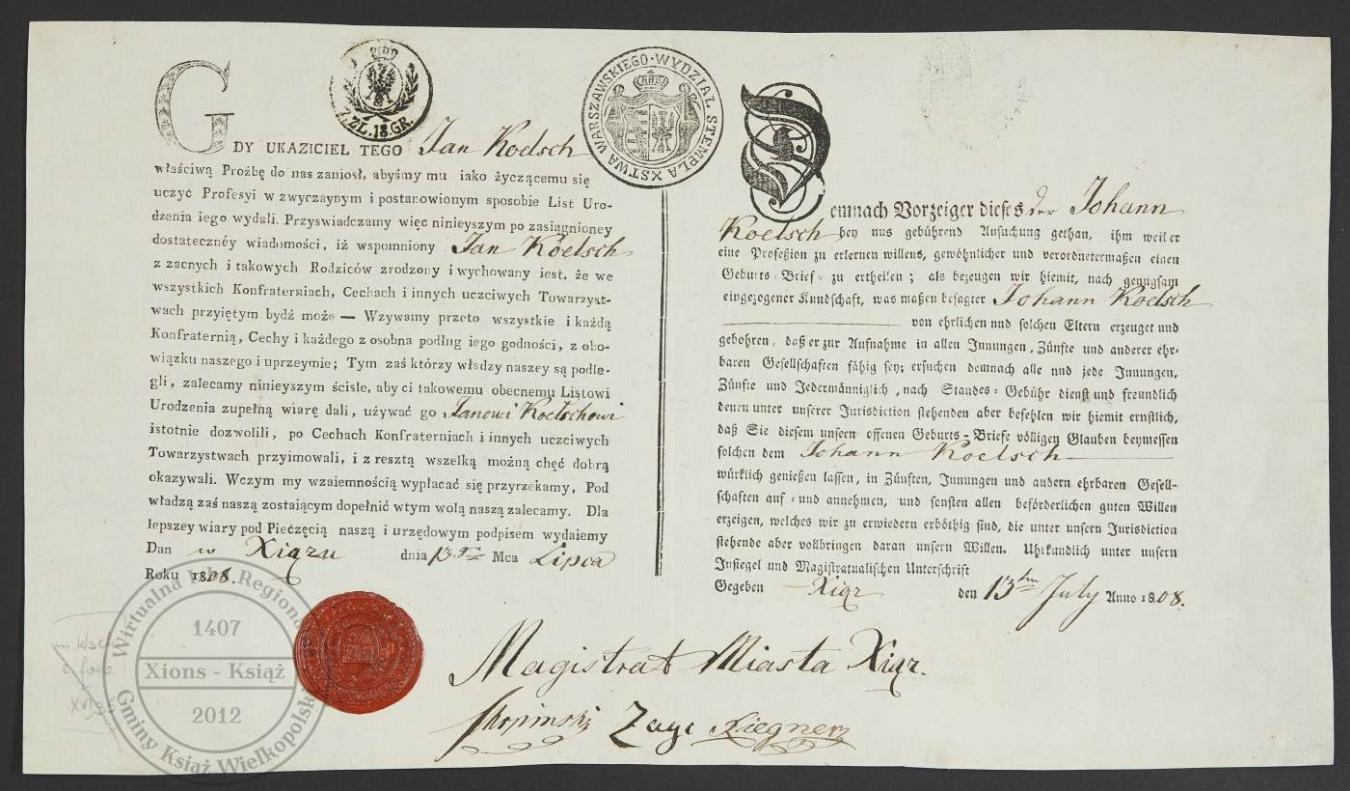 2.ZL.18.GR.
XSTWA WARSZAWSKIEGO·WYDZIAL STEMPLA
GDY UKAZICIEL TEGO Jan Koelsch
właściwą Proźbę do nas zaniosł, abyśmy mu iako życzącemu się
uczyć Profesyi w zwyczaynym i postanowionym sposobie List Uro-
dzenia iego wydali. Przyswiadczamy więc ninieyszym po zasiągnioney
dostatecznéy wiadomości, iż wspomniony Jan Koelsch
z zacnych i takowych Rodziców zrodzony i wychowany iest, że we
wszystkich Konfraterniach, Cechach i innych uczciwych Towarzyst-
wach przyiętym bydź może — Wzywamy przeto wszystkie i każdą
Konfraternią, Cechy i każdego z osobna podług iego godności, z obo-
wiązku naszego i uprzeymie; Tym zaś którzy władzy naszey są podle-
gli, zalecamy ninieyszym ścisle, aby ci takowemu obecnemu Listowi
Urodzenia zupełną wiarę dali, używać go Janowi Koelschowi
istotnie dozwolili, po Cechach Konfraterniach i innych uczciwych
Towarzystwach przyimowali, i z resztą wszelką możną chęć dobrą
okazywali. Wczym my wzaiemnością wypłacać się przyrzekamy, Pod
władzą zaś naszą zostaiącym dopełnić wtym wolą naszą zalecamy. Dla
lepszey wiary pod Pieczęcią naszą i urzędowym podpisem wydaiemy
Dan w Xiązu dnia 13 Mca Lipca
Roku 1808.
Demnach Vorzeiger dieses der Johann
Koelsch bey uns gebührend Ansuchung gethan, ihm weil er
eine Profeßion zu erlernen willens, gewöhnlicher und verordnetermaßen einen
Geburts-Brief zu ertheilen; als bezeugen wir hiemit, nach genugsam
eingezogener Kundschaft, was maßen besagter Johann Koelsch
von ehrlichen und solchen Eltern erzeuget und
gebohren, daß er zur Aufnahme in allen Innungen, Zünfte und anderer ehr-
baren Gesellschaften fähig sey; ersuchen demnach alle und jede Innungen,
Zünfte und Jedermänniglich, nach Standes-Gebühr dienst und freundlich
denen unter unserer Jurisdiction stehenden aber befehlen wir hiemit ernstlich,
daß Sie diesem unsern offenen Geburts-Briefe völligen Glauben beymessen
solchen dem Johann Koelsch
würklich genießen lassen, in Zünften, Innungen und andern ehrbaren Gesell-
schaften auf- und annehmen, und sonsten allen beförderlichen guten Willen
erzeigen, welches wir zu erwiedern erböthig sind, die unter unsern Jurisdiction
stehende aber vollbringen daran unsern Willen. Uhrkundlich unter unsern
Insiegel und Magistratualischen Unterschrift
Gegeben Xiąz den 13ten July Anno 1808.
Magistrat Miasta Xiąz.
Skopinski Zaye Kiegner
Wirtualna Izba Regionalna
1407
Xions - Książ
2012
Gminy Książ Wielkopolski